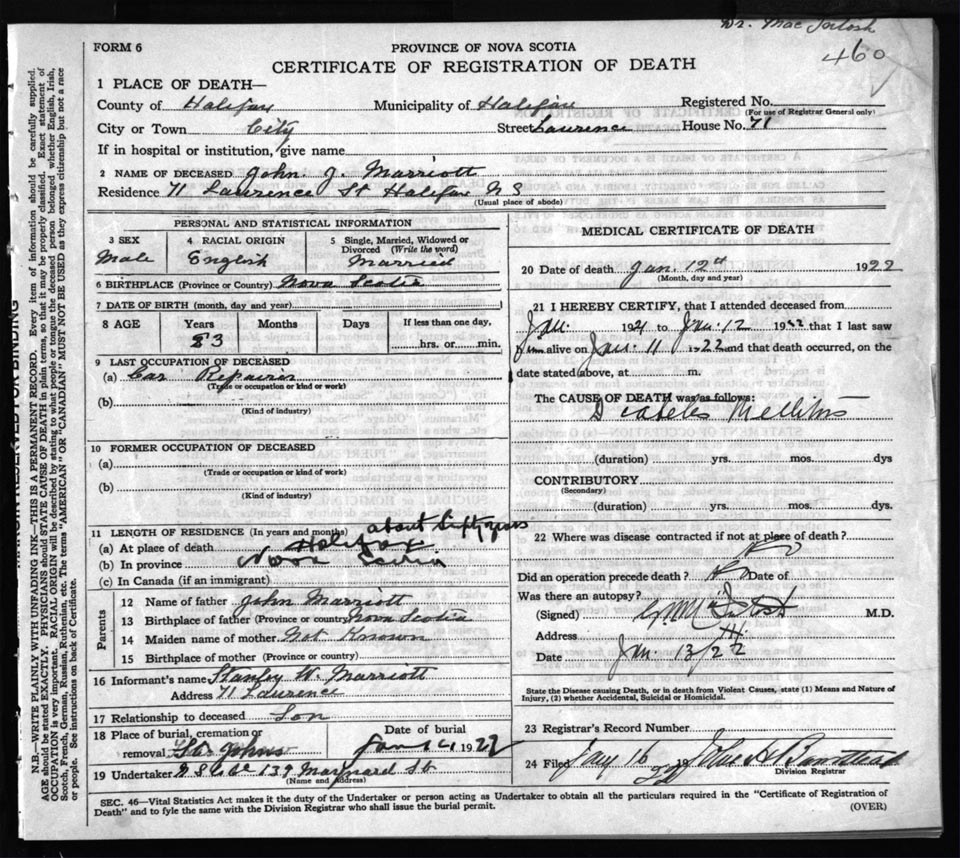 Dr. MacIntosh
460
FORM 6
PROVINCE OF NOVA SCOTIA
CERTIFICATE OF REGISTRATION OF DEATH
1 PLACE OF DEATH—
County of Halifax Municipality of Halifax Registered No.
(For use of Registrar General only)
City or Town City Street Lawrence House No. 71
If in hospital or institution, give name
2 NAME OF DECEASED John J. Marriott
Residence 71 Lawrence St Halifax N S
(Usual place of abode)
PERSONAL AND STATISTICAL INFORMATION
3 SEX 4 RACIAL ORIGIN 5 Single, Married, Widowed or Divorced (Write the word)
Male English Married
6 BIRTHPLACE (Province or Country) Nova Scotia
7 DATE OF BIRTH (month, day and year)
8 AGE Years Months Days If less than one day,
hrs. or min.
9 LAST OCCUPATION OF DECEASED
(a) Car Repairir
(Trade or occupation or kind or work)
(b)
(Kind of industry)
10 FORMER OCCUPATION OF DECEASED
(a)
(Trade or occupation or kind of work)
(b)
(Kind of industry)
11 LENGTH OF RESIDENCE (In years and months) about years
(a) At place of death Halifax
(b) In province Nova Scotia
(c) In Canada (if an immigrant)
Parents
12 Name of father John Marriott
13 Birthplace of father (Province or country) Nova Scotia
14 Maiden name of mother Not Known
15 Birthplace of mother (Province or country)
16 Informant's name Stanley W. Marriott
Address 71 Lawrence
17 Relationship to deceased Son
18 Place of burial, cremation or removal St Johns
Date of burial Jan 14 1922
19 Undertaker 139 Maynard St
(Name and address)
MEDICAL CERTIFICATE OF DEATH
20 Date of death Jan. 12th 1922
(Month, day and year)
21 I HEREBY CERTIFY, that I attended deceased from
Jan. 192 to Jan. 12 1922 that I last saw
him alive on Jan. 11 1922 and that death occurred, on the
date stated above, at m.
The CAUSE OF DEATH was as follows:
Diabetes Mellitus
(duration) yrs. mos. dys
CONTRIBUTORY
(Secondary)
(duration) yrs. mos. dys.
22 Where was disease contracted if not at place of death?
Did an operation precede death? No Date of
Was there an autopsy?
(Signed) M.D.
Address
Date Jan. 13/22
State the Disease causing Death, or in death from Violent Causes, state (1) Means and Nature of
Injury, (2) whether Accidental, Suicidal or Homicidal.
23 Registrar's Record Number
24 Filed Jany 16 19 John
Division Registrar
SEC. 46—Vital Statistics Act makes it the duty of the Undertaker or person acting as Undertaker to obtain all the particulars required in the "Certificate of Registration of
Death" and to fyle the same with the Division Registrar who shall issue the burial permit.
(OVER)
MARGIN RESERVED FOR BINDING
N.B.—WRITE PLAINLY WITH UNFADING INK—THIS IS A PERMANENT RECORD. Every item of information should be carefully supplied.
AGE should be stated EXACTLY. PHYSICIANS should STATE CAUSE OF DEATH in plain terms, so that it may be properly classified. Exact statement of
OCCUPATION is very important. RACIAL ORIGIN will be described by stating to what people or tongue the deceased person belonged whether English, Irish,
Scotch, French, German, Russian, Ruthenian, etc. The terms "AMERICAN" OR "CANADIAN" MUST NOT BE USED as they express citizenship but not a race
or people. See instructions on back of Certificate.